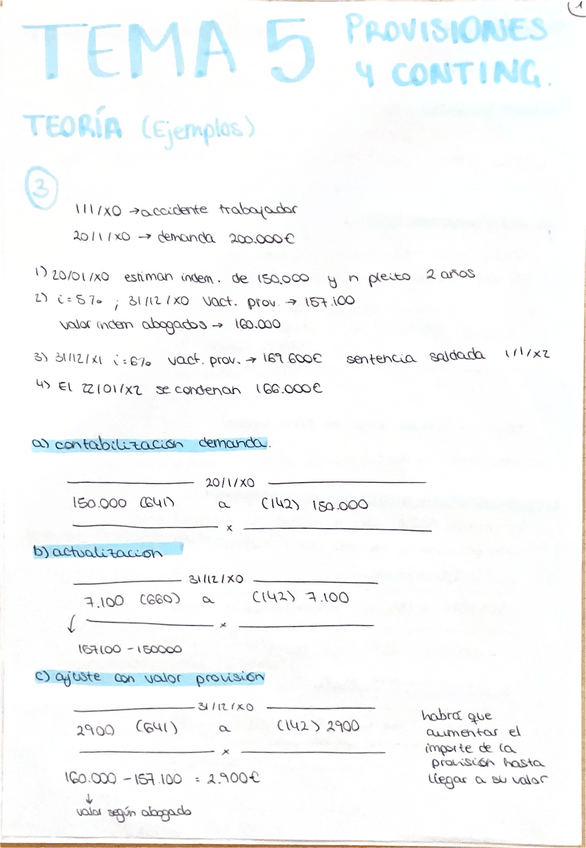 1
TEMA 5 PROVISIONES
Y CONTING.
TEORÍA (Ejemplos)
3
1/1/X0 → accidente trabajador
20/1/X0 → demanda 200.000€
1) 20/01/X0 estiman indem. de 150.000 y n pleito 2 años
2) i=5% ; 31/12/X0 Vact. prov. → 157.100
valor indem abogados → 160.000
3) 31/12/X1 i=6% Vact. prov. → 169600€ sentencia saldada 1/1/X2
4) El 22/01/X2 se condenan 166.000€
a) contabilización demanda.
20/1/X0
150.000 (641) a (142) 150.000
x
b) actualización
31/12/X0
7.100 (660) a (142) 7.100
x
157100 - 150000
c) ajuste con valor provisión
31/12/X0
2900 (641) a (142) 2900
x
160.000 - 157.100 = 2.900€
valor según abogado
habrá que
aumentar el
importe de la
provisión hasta
llegar a su valor